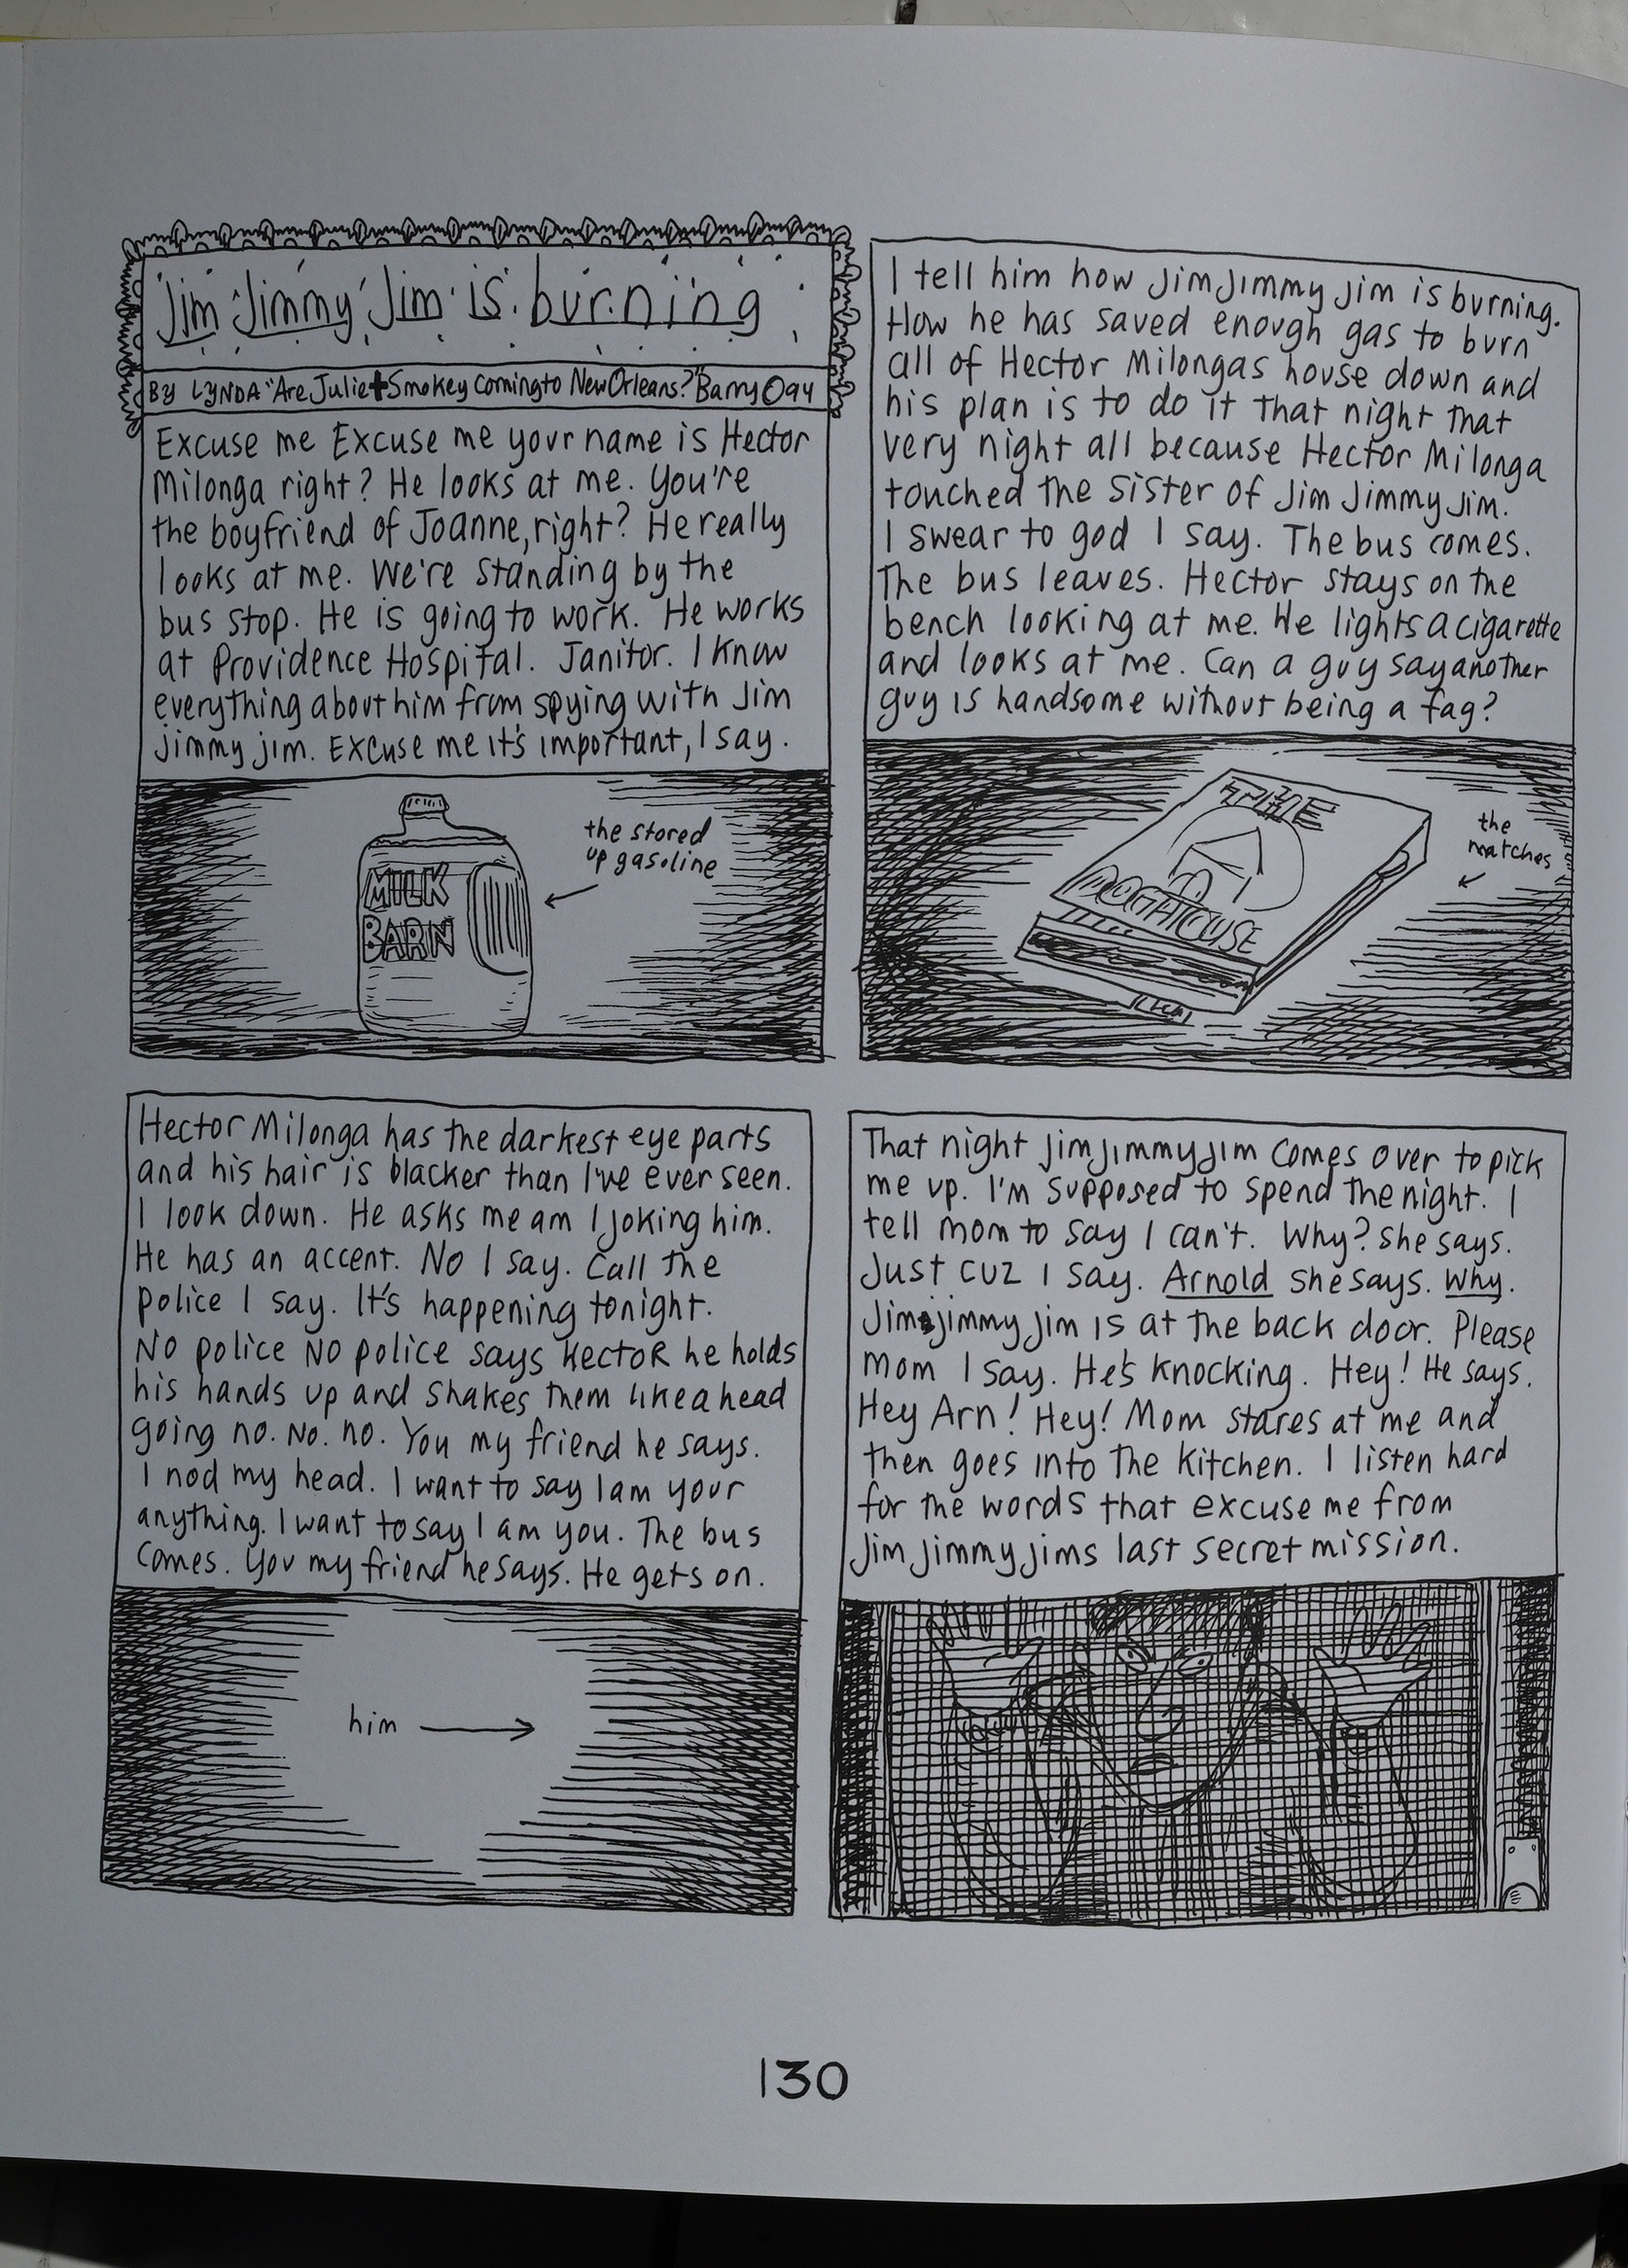 Jim Jimmy Jim is burning
BY LYNDA "Are Julie + Smokey Coming to New Orleans?" Barry © 94
Excuse me Excuse me your name is Hector
Milonga right? He looks at me. You're
the boyfriend of Joanne, right? He really
looks at me. We're standing by the
bus stop. He is going to work. He works
at Providence Hospital. Janitor. I know
everything about him from spying with Jim
Jimmy Jim. Excuse me it's important, I say.
the stored
up gasoline
MILK
BARN
I tell him how Jim Jimmy Jim is burning.
How he has saved enough gas to burn
all of Hector Milongas house down and
his plan is to do it that night that
very night all because Hector Milonga
touched the sister of Jim Jimmy Jim.
I swear to god I say. The bus comes.
The bus leaves. Hector stays on the
bench looking at me. He lights a cigarette
and looks at me. Can a guy say another
guy is handsome without being a fag?
THE
DOGHOUSE
the
matches
Hector Milonga has the darkest eye parts
and his hair is blacker than I've ever seen.
I look down. He asks me am I joking him.
He has an accent. No I say. Call the
police I say. It's happening tonight.
No police No police says Hector he holds
his hands up and shakes them like a head
going no. No. no. You my friend he says.
I nod my head. I want to say I am your
anything. I want to say I am you. The bus
comes. You my friend he says. He gets on.
him
That night Jim Jimmy Jim comes over to pick
me up. I'm supposed to spend the night. I
tell mom to say I can't. Why? She says.
Just cuz I say. Arnold she says. Why.
Jim Jimmy Jim is at the back door. Please
mom I say. He's knocking. Hey! He says.
Hey Arn! Hey! Mom stares at me and
then goes into the kitchen. I listen hard
for the words that excuse me from
Jim Jimmy Jims last secret mission.
130